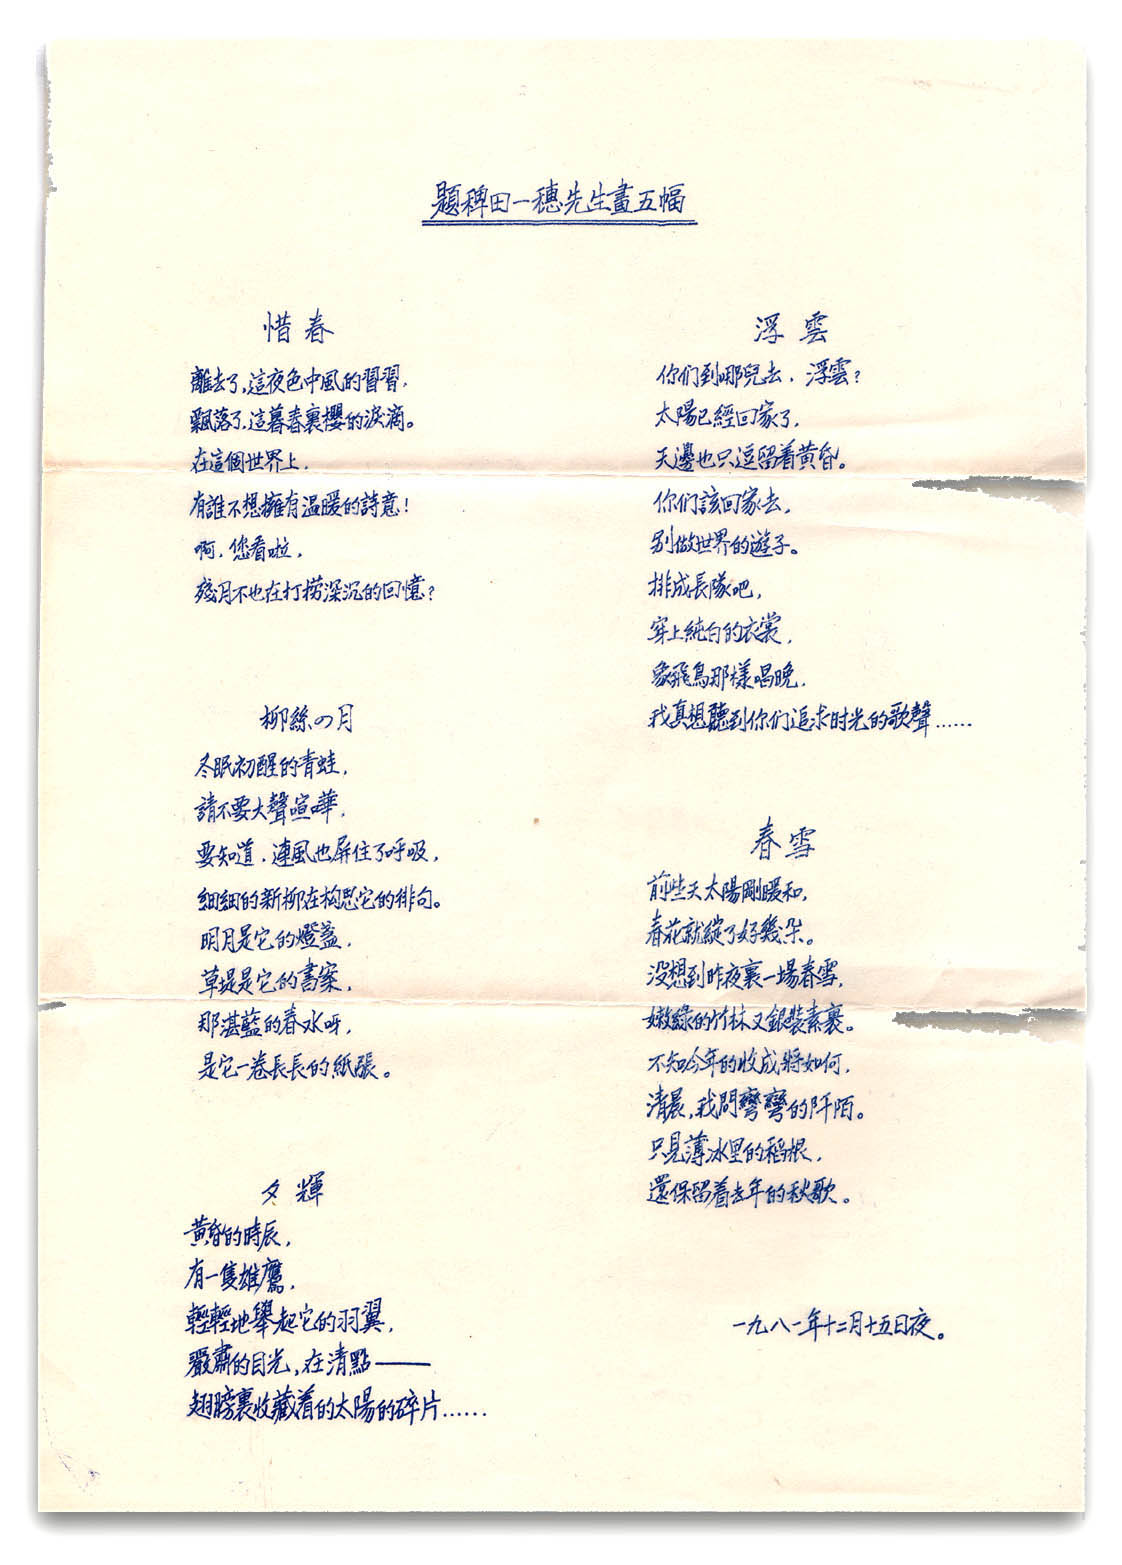 題稗田一穗先生畫五幅
惜春
離去了，這夜色中風的習習，
飄落了，這暮春裏櫻的淚滴。
在這個世界上，
有誰不想擁有温暖的詩意！
啊，您看啦，
殘月不也在打捞深沉的回憶？
柳絲の月
冬眠初醒的青蛙，
請不要大聲喧嘩，
要知道，連風也屏住了呼吸，
細細的新柳在构思它的俳句。
明月是它的燈盞，
草堤是它的書案，
那湛藍的春水呀，
是它一卷長長的紙張。
夕輝
黄昏的時辰，
有一隻雄鷹，
輕輕地舉起它的羽翼，
嚴肅的目光，在清點——
翅膀裏收藏着的太陽的碎片……
浮雲
你们到哪兒去，浮雲？
太陽已經回家了，
天邊也只逗留着黄昏。
你们該回家去，
别做世界的遊子。
排成長隊吧，
穿上純白的衣裳，
象飛鳥那樣唱晚，
我真想聽到你们追求时光的歌聲……
春雪
前些天太陽剛暖和，
春花就綻了好幾朵。
没想到昨夜裏一場春雪，
嫩綠的竹林又銀裝素裹。
不知今年的收成將如何，
清晨，我問彎彎的阡陌。
只見薄冰里的稻根，
還保留着去年的秋歌。
一九八一年十二月十五日夜。